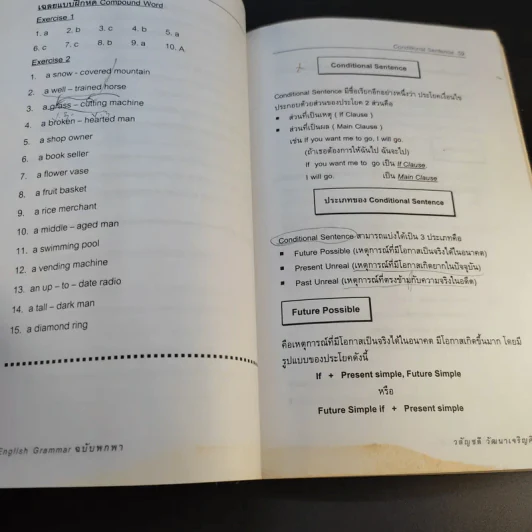 เฉลยแบบฝึกหัด Compound Word
Exercise 1
1. a 2. b 3. c 4. b 5. a
6. c 7. c 8. b 9. a 10. A
Exercise 2
1. a snow - covered mountain
2. a well – trained horse
3. a grass – cutting machine
4. a broken – hearted man
5. a shop owner
6. a book seller
7. a flower vase
8. a fruit basket
9. a rice merchant
10. a middle – aged man
11. a swimming pool
12. a vending machine
13. an up – to – date radio
14. a tall – dark man
15. a diamond ring
English Grammar ฉบับพกพา
Conditional Sentence
Conditional Sentence
Conditional Sentence มีชื่อเรียกอีกอย่างหนึ่งว่า ประโยคเงื่อนไข
ประกอบด้วยส่วนของประโยค 2 ส่วนคือ
■ ส่วนที่เป็นเหตุ ( If Clause )
■ ส่วนที่เป็นผล ( Main Clause )
เช่น If you want me to go, I will go.
(ถ้าเธอต้องการให้ฉันไป ฉันจะไป)
If you want me to go เป็น If Clause.
I will go. เป็น Main Clause
ประเภทของ Conditional Sentence
Conditional Sentence สามารถแบ่งได้เป็น 3 ประเภทคือ
■ Future Possible (เหตุการณ์ที่มีโอกาสเป็นจริงได้ในอนาคต)
■ Present Unreal (เหตุการณ์ที่มีโอกาสเกิดยากในปัจจุบัน)
■ Past Unreal (เหตุการณ์ที่ตรงข้ามกับความจริงในอดีต)
Future Possible
คือเหตุการณ์ที่มีโอกาสเป็นจริงได้ในอนาคต มีโอกาสเกิดขึ้นมาก โดยมี
รูปแบบของประโยคดังนี้
If + Present simple, Future Simple
หรือ
Future Simple if + Present simple